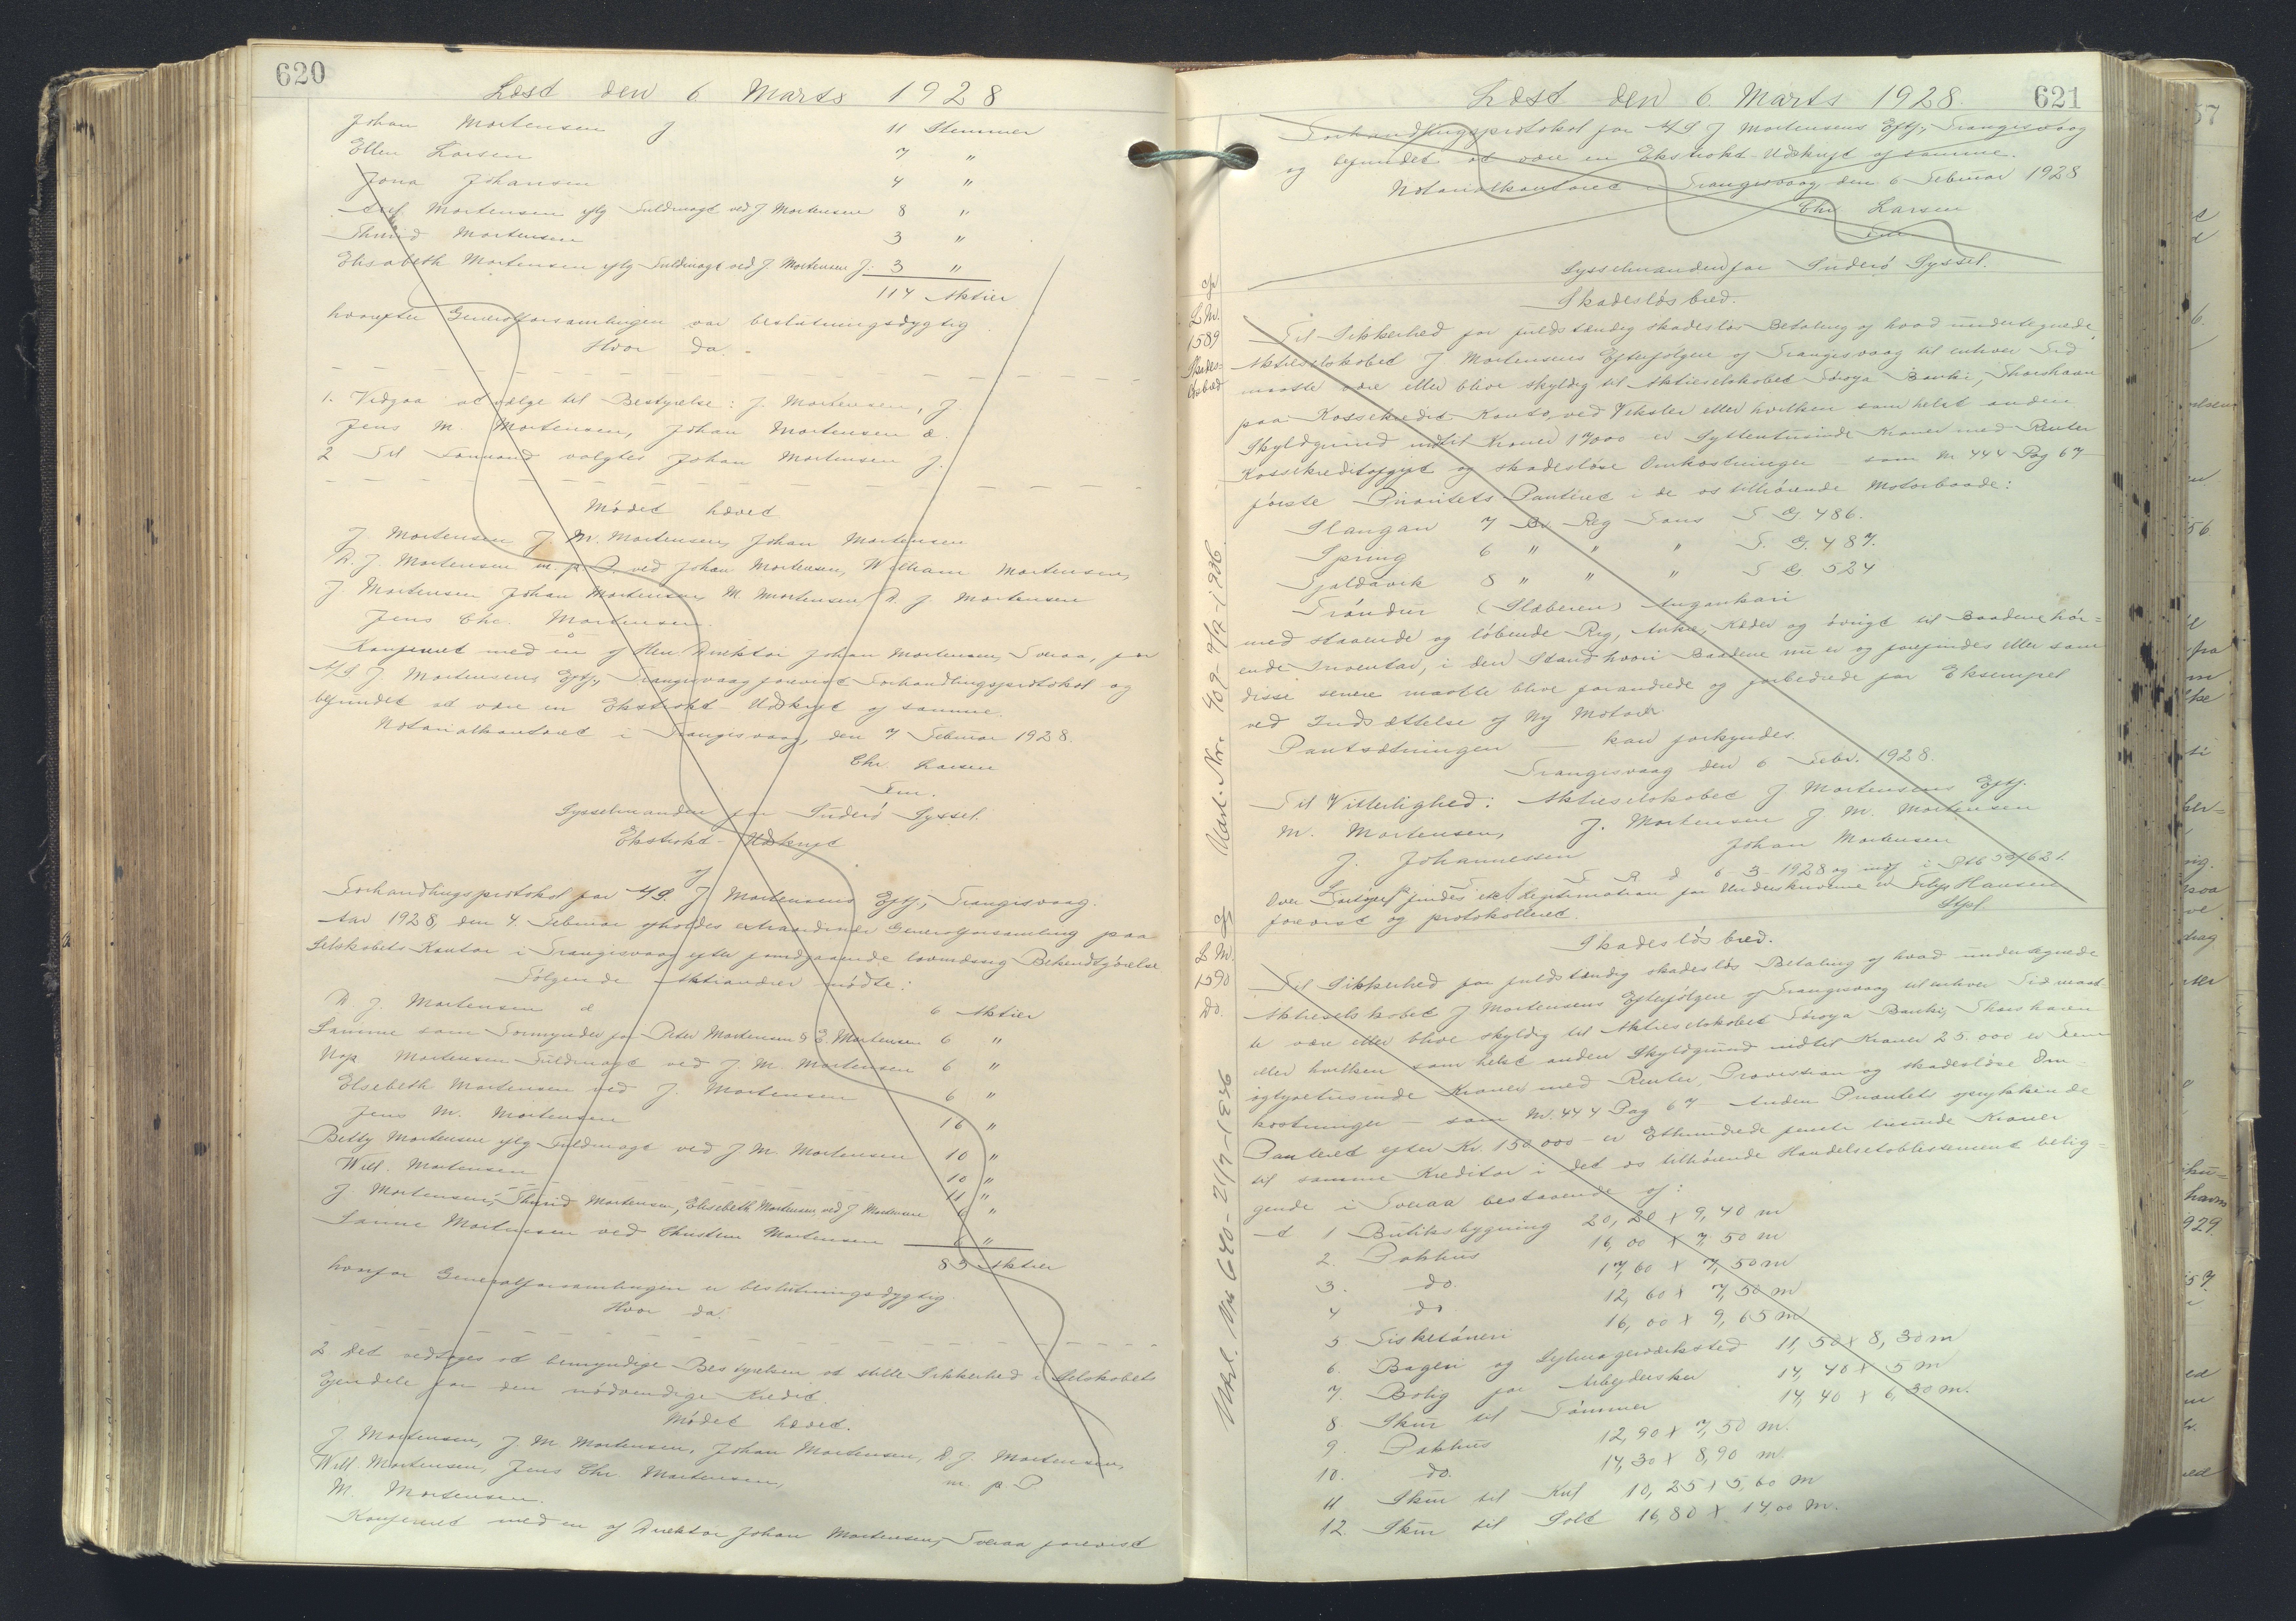 620
Læst den 6 Marts 1928
Johan Mortensen J 11 Stemmer
Ellen Larsen 7 "
Jona Johansen 4 "
Mortensen iflg Fuldmagt ved J Mortensen 8 "
Thurid Mortensen 3 "
Elisabeth Mortensen iflg Fuldmagt ved J. Mortensen J. 3 "
114 Aktier
hvorefter Generalforsamlingen var beslutningsdygtig
Hvor da.
1. Vedgaa at vælge til Bestyrelse: J. Mortensen, J.
Jens M. Mortensen, Johan Mortensen d.
2 Til Formand valgtes Johan Mortensen J.
Mødet hævet
J. Mortensen J. M. Mortensen, Johan Mortensen
D. J. Mortensen m. p. P. ved Johan Mortensen, William Mortensen,
J. Mortensen Johan Mortensen, M Mortensen D. J. Mortensen
Jens Chr. Mortensen.
Konfereret med en af Hrr. Direktør Johan Mortensen, Tveraa, for
A/S J. Mortensens Eftf., Trangisvaag forevist Forhandlingsprotokol og
befundet at være en Ekstrakt-Udskrift af samme.
Notarialkontoret i Trangisvaag, den 7 Februar 1928.
Chr. Larsen
Fm.
Sysselmanden for Suderø Syssel.
Ekstrakt-Udskrift
af
Forhandlingsprotokol for A/S. J Mortensens Eftf., Trangisvaag.
Aar 1928, den 4. Februar afholdes extraordinær Generalforsamling paa
Selskabets Kontor i Trangisvaag efter forudgaaende lovmæssig Bekendtgørelse
Følgende Aktionærer mødte:
D. J. Mortensen d 6 Aktier
Samme som Formynder for Peter Mortensen & E. Mortensen 6 "
Nap. Mortensen Fuldmagt ved J. M. Mortensen 6 "
Elsebeth Mortensen ved J. Mortensen 6 "
Jens M. Mortensen 16 "
Betty Mortensen iflg Fuldmagt ved J. M. Mortensen 10 "
Will. Mortensen 10 "
J Mortensen, Thurid Mortensen, Elisebeth Mortensen, ved J Mortensen "
Mortensen ved Christian Mortensen 6 "
85 Aktier
hvorfor Generalforsamlingen er beslutningsdygtig.
Hvor da:
2 Det vedtoges at bemyndige Bestyrelsen at stille Sikkerhed i Selskabets
Ejendele for den nødvendige Kredit.
Mødet hævet.
J. Mortensen, J M Mortensen, Johan Mortensen, D. J. Mortensen,
Will. Mortensen, Jens Chr Mortensen, m. p. P
M. Mortensen.
Konfereret med en af Direktør Johan Mortensen, Tveraa forevist
621
Læst den 6 Marts 1928.
Forhandlingsprotokol for A/S J Mortensens Eftf., Trangisvaag
og befundet at være en Ekstrakt-Udskrift af samme.
Notarialkontoret i Trangisvaag, den 6 Februar 1928
Chr Larsen
Fm
Sysselmanden for Suderø Syssel.
L M.
1589
Skades-
løsbred
Skadesløsbred.
Til Sikkerhed for fuldstændig skadesløs Betaling af hvad undertegnede
Aktieselskabet J Mortensens Efterfølgere af Trangisvaag til enhver Tid
maatte være eller blive skyldig til Aktieselskabet Føroya Banki, Thorshavn
paa Kassekredit-Konto, ved Veksler eller hvilken som helst anden
Skyldgrund indtil Kroner 17000 er Syttentusinde Kroner med Renter
Kassekreditafgift og skadesløse Omkostninger som Nr 444 Pag 67
første Prioritets Panteret i de os tilhørende Motorbaade:
Slangan 7 Br Reg Tons T G 486.
Spring 6 " " " T. G. 487.
Tjaldavik 8 " " " T G 524
Tróndur (Slæberen)
med staaende og løbende Rig, Anker, Kæder og øvrigt til Baadene hør=
ende Inventar, i den Stand hvori Baadene nu er og forefindes eller som
disse senere maatte blive forandrede og forbedrede for Eksempel
ved Indsættelse af Ny Motor
Pantsætningen — kan forkyndes.
Trangisvaag den 6 Febr. 1928.
Til Vitterlighed: Aktieselskabet J Mortensens Eftf.
M. Mortensen, J. Mortensen J. M. Mortensen
J. Johannessen Johan Mortensen
6-3-1928 og indf i
Over findes Legitimation for Underskriverne er
forevist og protokolleret. Hansen
Udsl. Nr. 409-
L M.
1590
Do.
Skadesløsbred.
Til Sikkerhed for fuldstændig skadesløs Betaling af hvad undertegnede
Aktieselskabet J Mortensens Efterfølgere af Trangisvaag til enhver Tid maat-
te være eller blive skyldig til Aktieselskabet Føroya Banki, Thorshavn
eller hvilken som helst anden Skyldgrund indtil Kroner 25.000 er Fem
ogtyvetusinde Kroner med Renter, Provistion og skadesløse Om-
kostninger — som Nr. 444 Pag 67 Anden Prioritets oprykkende
Panteret efter Kr. 150.000 er Ethundrede femti tusinde Kroner
til samme Kreditor i det os tilhørende Handelsetablissement belig=
gende i Tveraa bestaaende af:
1 Butiksbygning 20,20 X 9,40 m
2. Pakhus 16,00 X 7,50 m
3. do. 17,60 X 7,50 m
4 do 12,60 X 7,50 m
5. 16,00 X 9,65 m
6. Bageri og 11,50 X 8,30 m
7. Bolig for Arbejdersker 14,40 X 5 m
8 Skur til Tømmer 14,40 X 6,30 m.
9. Pakhus 12,90 X 7,50 m.
10. do. 14,30 X 8,90 m
11 Skur til Kul 10,25 X 5,60 m
12. Skur til Salt 16,80 X 14,00 m.
Udsl. Nr. 640-21/7-1936